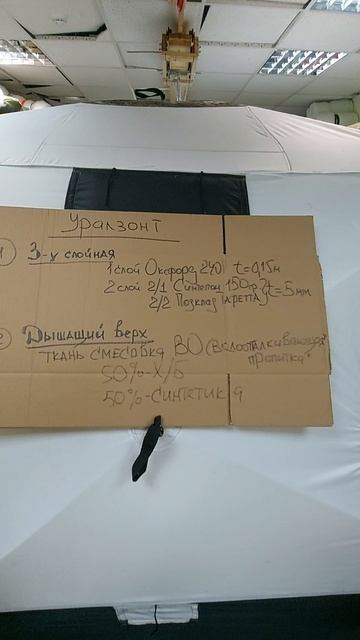 Уралзонт
1 3-х слойная
1 слой Оксфорд 240 t=0,15м
2 слой 2/1 Синтепон 150гр t=5мм
2/2 Подклад
2 Дышащий верх
ткань смесовка ВО (Водоотталкивающая
пропитка"
50%-Х/Б
50%-синтетика